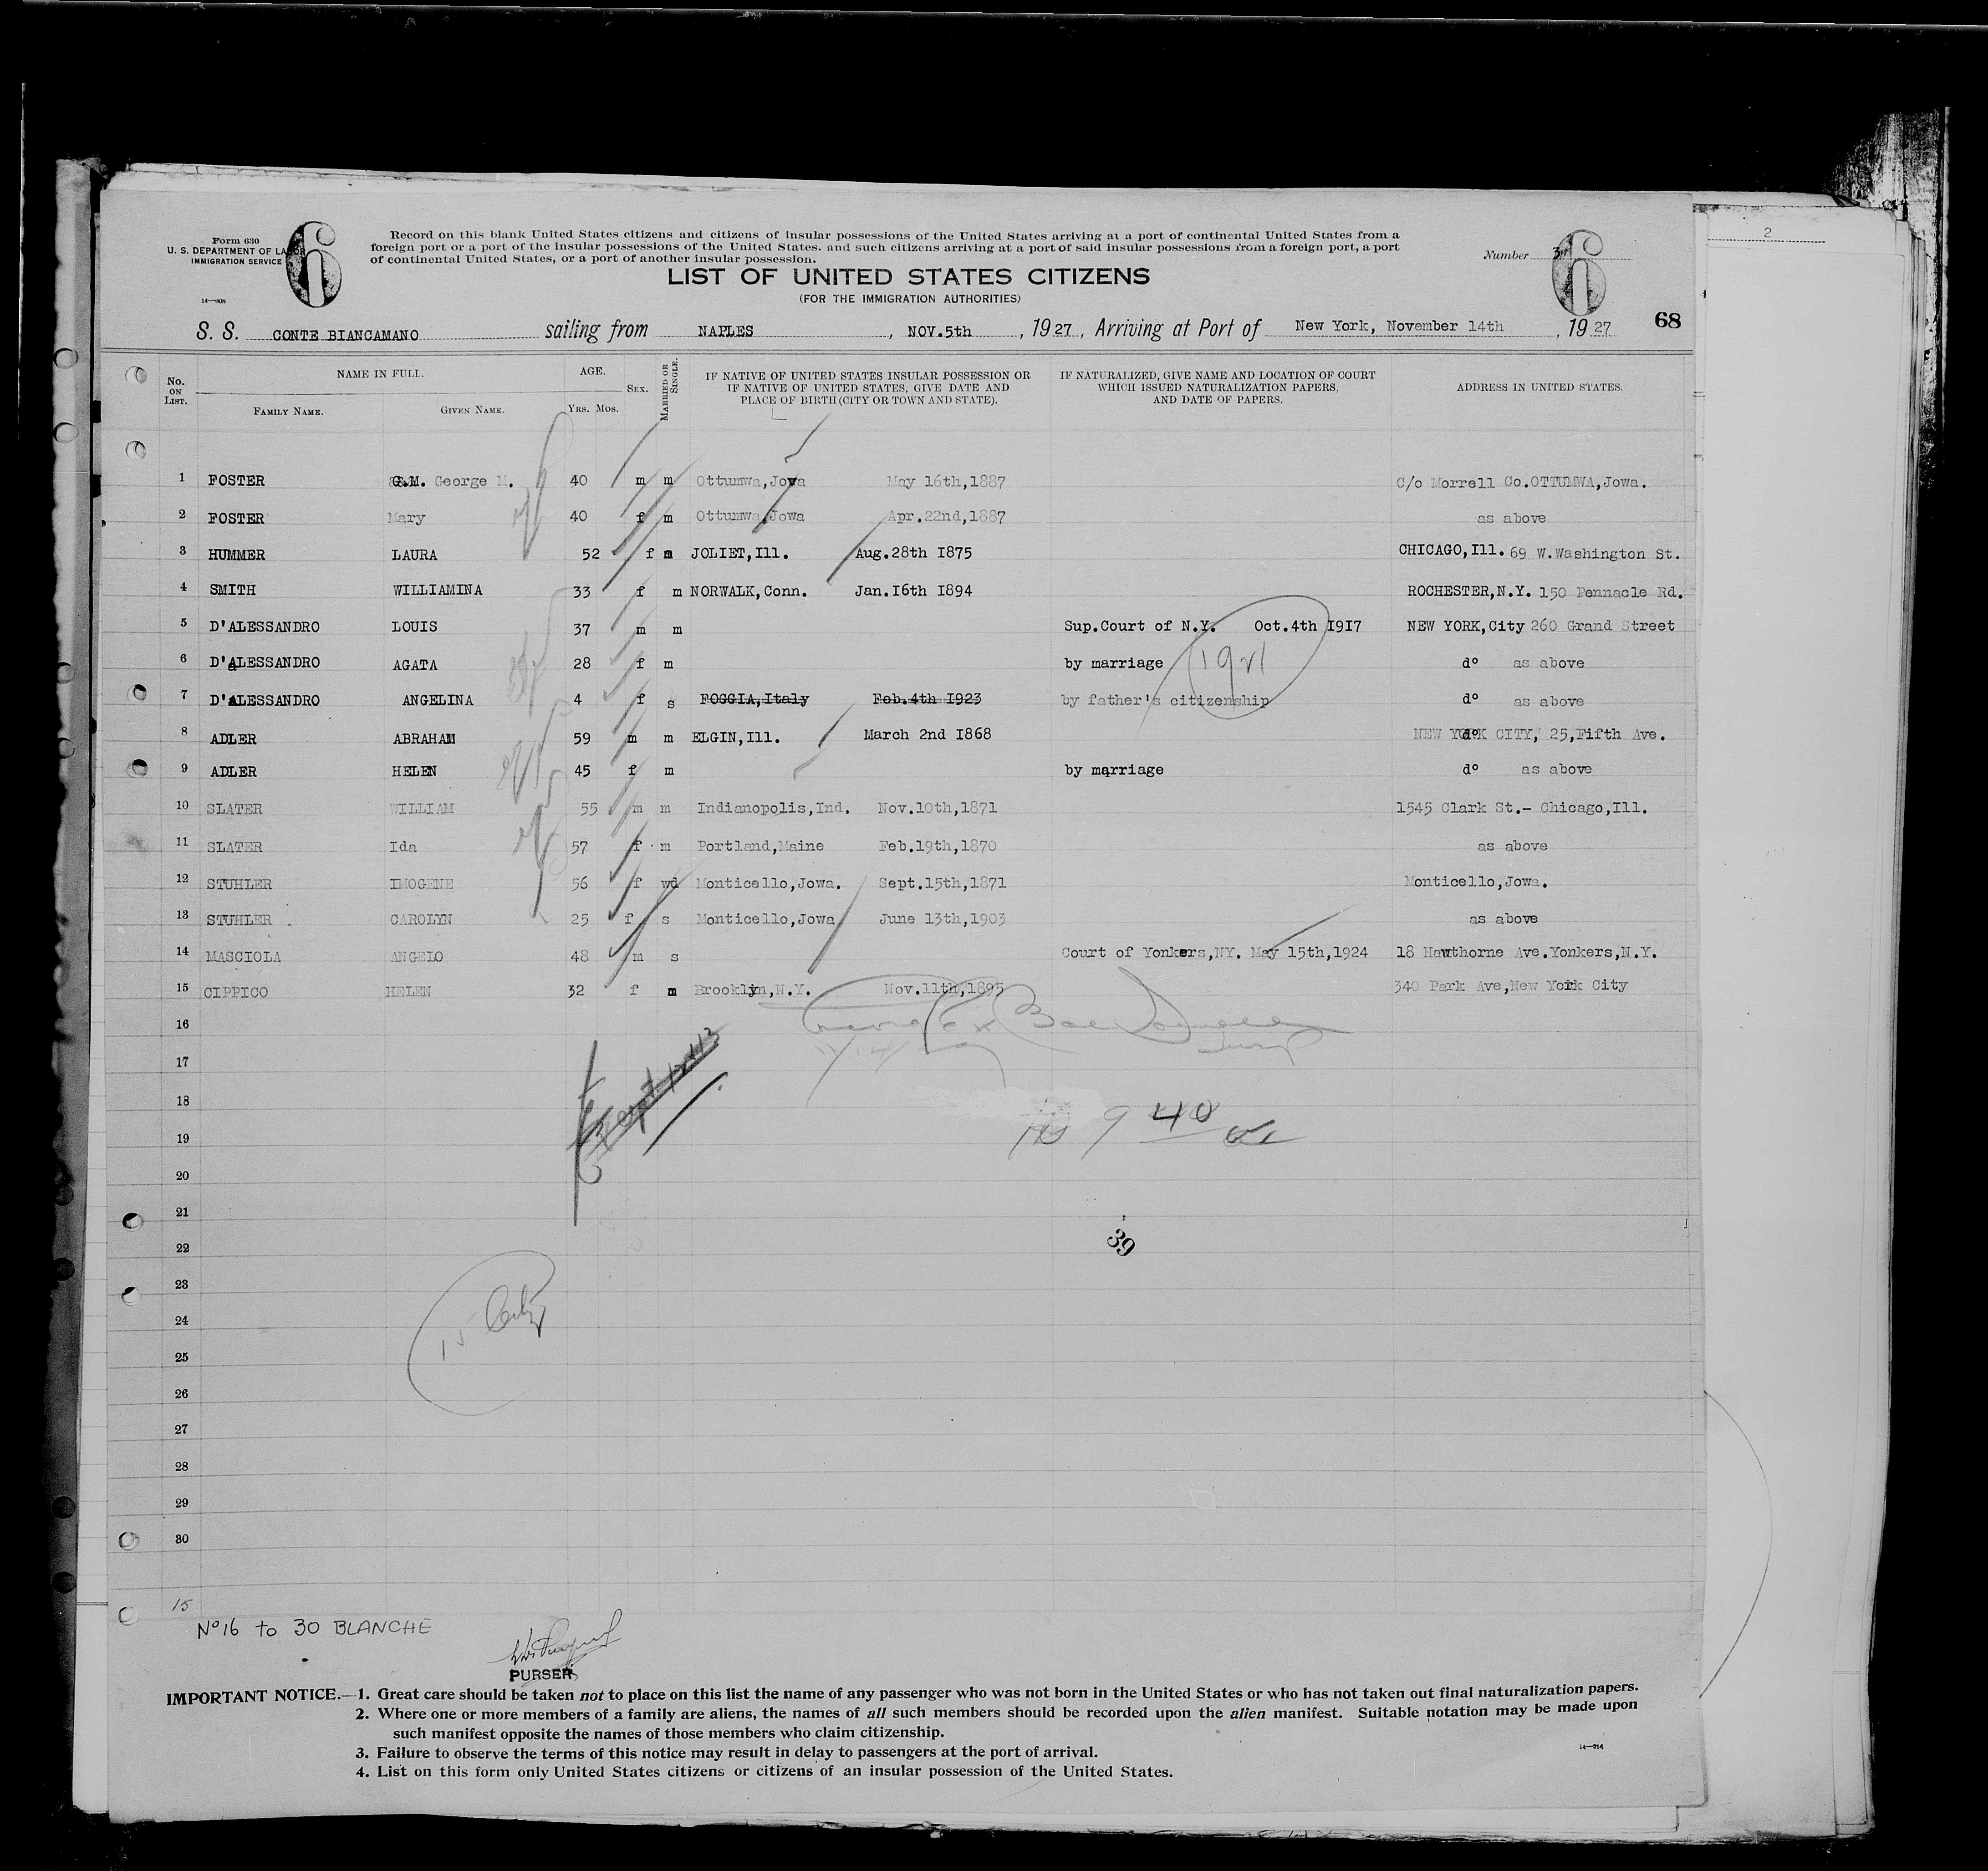 Form 630
U. S. DEPARTMENT OF LABOR
IMMIGRATION SERVICE
6
14—808
Record on this blank United States citizens and citizens of insular possessions of the United States arriving at a port of continental United States from a
foreign port or a port of the insular possessions of the United States. and such citizens arriving at a port of said insular possessions from a foreign port, a port
of continental United States, or a port of another insular possession.
LIST OF UNITED STATES CITIZENS
(FOR THE IMMIGRATION AUTHORITIES)
Number 3
6
2
S. S. CONTE BIANCAMANO sailing from NAPLES, NOV.5th, 1927, Arriving at Port of New York, November 14th, 1927
68
No. ON LIST. NAME IN FULL. FAMILY NAME. GIVEN NAME. AGE. YRS. MOS. SEX. MARRIED OR SINGLE. IF NATIVE OF UNITED STATES INSULAR POSSESSION OR IF NATIVE OF UNITED STATES, GIVE DATE AND PLACE OF BIRTH (CITY OR TOWN AND STATE). IF NATURALIZED, GIVE NAME AND LOCATION OF COURT WHICH ISSUED NATURALIZATION PAPERS, AND DATE OF PAPERS. ADDRESS IN UNITED STATES.
1 FOSTER G.M. George M. 40 m m Ottumwa,Jowa May 16th,1887 C/o Morrell Co.OTTUMWA,Jowa.
2 FOSTER Mary 40 f m Ottumwa,Jowa Apr.22nd,1887 as above
3 HUMMER LAURA 52 f m JOLIET,Ill. Aug.28th I875 CHICAGO,Ill. 69 W.Washington St.
4 SMITH WILLIAMINA 33 f m NORWALK,Conn. Jan.I6th I894 ROCHESTER,N.Y. 150 Pennacle Rd.
5 D'ALESSANDRO LOUIS 37 m m Sup.Court of N.Y. Oct.4th I9I7 NEW YORK,City 260 Grand Street
6 D'ALESSANDRO AGATA 28 f m by marriage 1921 d° as above
7 D'ALESSANDRO ANGELINA 4 f s FOGGIA,Italy Feb.4th I923 by father's citizenship d° as above
8 ADLER ABRAHAM 59 m m ELGIN,Ill. March 2nd I868 NEW YORK CITY, 25,Fifth Ave.
9 ADLER HELEN 45 f m by marriage d° as above
10 SLATER WILLIAM 55 m m Indianopolis,Ind. Nov.10th,1871 1545 Clark St.- Chicago,Ill.
11 SLATER Ida 57 f m Portland,Maine Feb.19th,1870 as above
12 STUHLER IMOGENE 56 f wd Monticello,Jowa. Sept.15th,1871 Monticello,Jowa.
13 STUHLER CAROLYN 25 f s Monticello,Jowa June 13th,1903 as above
14 MASCIOLA ANGELO 48 m s Court of Yonkers,NY. May 15th,1924 18 Hawthorne Ave.Yonkers,N.Y.
15 CIPPICO HELEN 32 f m Brooklyn,N.Y. Nov.11th,1895 340 Park Ave,New York City
16
17
18
19
9 40
20
21
22
39
23
24
25
26
27
28
29
30
15
N°16 to 30 BLANCHE
PURSER
IMPORTANT NOTICE.—1. Great care should be taken not to place on this list the name of any passenger who was not born in the United States or who has not taken out final naturalization papers.
2. Where one or more members of a family are aliens, the names of all such members should be recorded upon the alien manifest. Suitable notation may be made upon
such manifest opposite the names of those members who claim citizenship.
3. Failure to observe the terms of this notice may result in delay to passengers at the port of arrival.
4. List on this form only United States citizens or citizens of an insular possession of the United States.
14—714